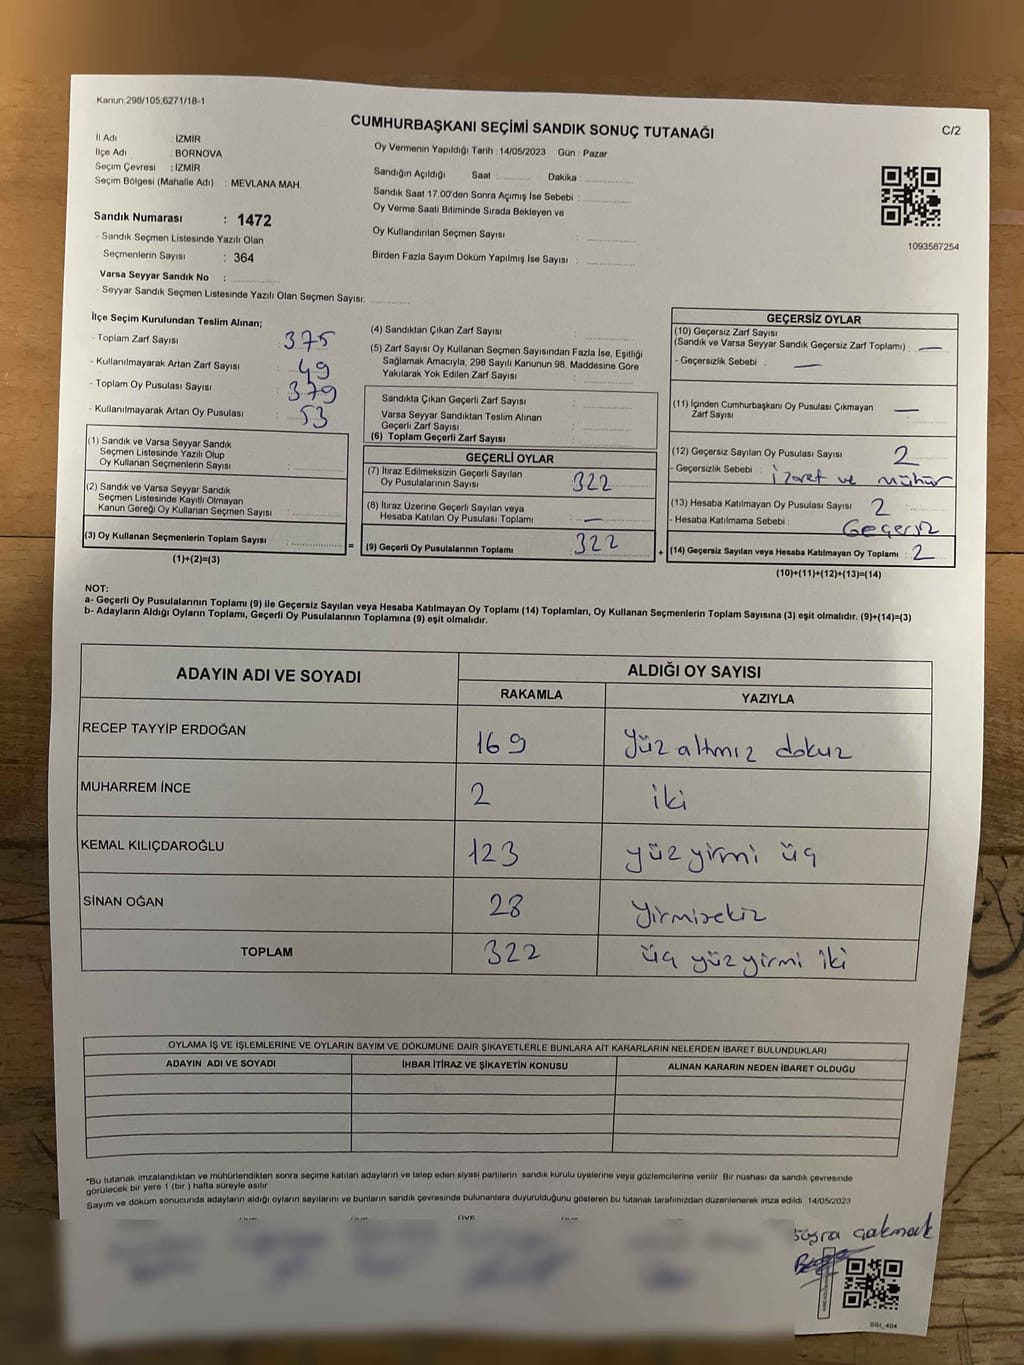 Kanun:298/105,6271/18-1
CUMHURBAŞKANI SEÇİMİ SANDIK SONUÇ TUTANAĞI
C/2
İl Adı : İZMİR
İlçe Adı : BORNOVA
Seçim Çevresi : İZMİR
Seçim Bölgesi (Mahalle Adı) : MEVLANA MAH.
Oy Vermenin Yapıldığı Tarih : 14/05/2023 Gün : Pazar
Sandığın Açıldığı Saat : Dakika :
Sandık Saat 17.00'den Sonra Açımış İse Sebebi :
Oy Verme Saati Bitiminde Sırada Bekleyen ve
Oy Kullandırılan Seçmen Sayısı :
Birden Fazla Sayım Döküm Yapılmış İse Sayısı :
1093587254
Sandık Numarası : 1472
- Sandık Seçmen Listesinde Yazılı Olan
Seçmenlerin Sayısı : 364
Varsa Seyyar Sandık No :
- Seyyar Sandık Seçmen Listesinde Yazılı Olan Seçmen Sayısı:
İlçe Seçim Kurulundan Teslim Alınan;
- Toplam Zarf Sayısı : 375
- Kullanılmayarak Artan Zarf Sayısı : 49
- Toplam Oy Pusulası Sayısı : 379
- Kullanılmayarak Artan Oy Pusulası : 53
(1) Sandık ve Varsa Seyyar Sandık
Seçmen Listesinde Yazılı Olup
Oy Kullanan Seçmenlerin Sayısı :
(2) Sandık ve Varsa Seyyar Sandık
Seçmen Listesinde Kayıtlı Olmayan
Kanun Gereği Oy Kullanan Seçmen Sayısı :
(3) Oy Kullanan Seçmenlerin Toplam Sayısı :
(1)+(2)=(3)
=
(4) Sandıktan Çıkan Zarf Sayısı :
(5) Zarf Sayısı Oy Kullanan Seçmen Sayısından Fazla İse, Eşitliği
Sağlamak Amacıyla, 298 Sayılı Kanunun 98. Maddesine Göre
Yakılarak Yok Edilen Zarf Sayısı :
Sandıkta Çıkan Geçerli Zarf Sayısı :
Varsa Seyyar Sandıktan Teslim Alınan
Geçerli Zarf Sayısı :
(6) Toplam Geçerli Zarf Sayısı :
GEÇERLİ OYLAR
(7) İtiraz Edilmeksizin Geçerli Sayılan
Oy Pusulalarının Sayısı : 322
(8) İtiraz Üzerine Geçerli Sayılan veya
Hesaba Katılan Oy Pusulası Toplamı : —
(9) Geçerli Oy Pusulalarının Toplamı : 322
+
GEÇERSİZ OYLAR
(10) Geçersiz Zarf Sayısı
(Sandık ve Varsa Seyyar Sandık Geçersiz Zarf Toplamı) : —
- Geçersizlik Sebebi : —
(11) İçinden Cumhurbaşkanı Oy Pusulası Çıkmayan
Zarf Sayısı : —
(12) Geçersiz Sayılan Oy Pusulası Sayısı : 2
- Geçersizlik Sebebi : izaret ve mühür
(13) Hesaba Katılmayan Oy Pusulası Sayısı : 2
- Hesaba Katılmama Sebebi : Geçersiz
(14) Geçersiz Sayılan veya Hesaba Katılmayan Oy Toplamı : 2
(10)+(11)+(12)+(13)=(14)
NOT:
a- Geçerli Oy Pusulalarının Toplamı (9) ile Geçersiz Sayılan veya Hesaba Katılmayan Oy Toplamı (14) Toplamları, Oy Kullanan Seçmenlerin Toplam Sayısına (3) eşit olmalıdır. (9)+(14)=(3)
b- Adayların Aldığı Oyların Toplamı, Geçerli Oy Pusulalarının Toplamına (9) eşit olmalıdır.
ADAYIN ADI VE SOYADI
ALDIĞI OY SAYISI
RAKAMLA YAZIYLA
RECEP TAYYİP ERDOĞAN 169 yüz altmız dokuz
MUHARREM İNCE 2 iki
KEMAL KILIÇDAROĞLU 123 yüz yirmi üç
SİNAN OĞAN 28 yirmisekiz
TOPLAM 322 üç yüz yirmi iki
OYLAMA İŞ VE İŞLEMLERİNE VE OYLARIN SAYIM VE DÖKÜMÜNE DAİR ŞİKAYETLERLE BUNLARA AİT KARARLARIN NELERDEN İBARET BULUNDUKLARI
ADAYIN ADI VE SOYADI İHBAR İTİRAZ VE ŞİKAYETİN KONUSU ALINAN KARARIN NEDEN İBARET OLDUĞU
*Bu tutanak imzalandıktan ve mühürlendikten sonra seçime katılan adayların ve talep eden siyasi partilerin sandık kurulu üyelerine veya gözlemcilerine verilir. Bir nüshası da sandık çevresinde
görülecek bir yere 1 (bir) hafta süreyle asılır.
Sayım ve döküm sonucunda adayların aldığı oyların sayılarını ve bunların sandık çevresinde bulunanlara duyurulduğunu gösteren bu tutanak tarafımızdan düzenlenerek imza edildi. 14/05/2023
Büşra Çakmak
SSI_404